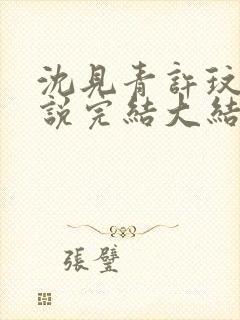 沈見青許玟
說完結大結
張璧